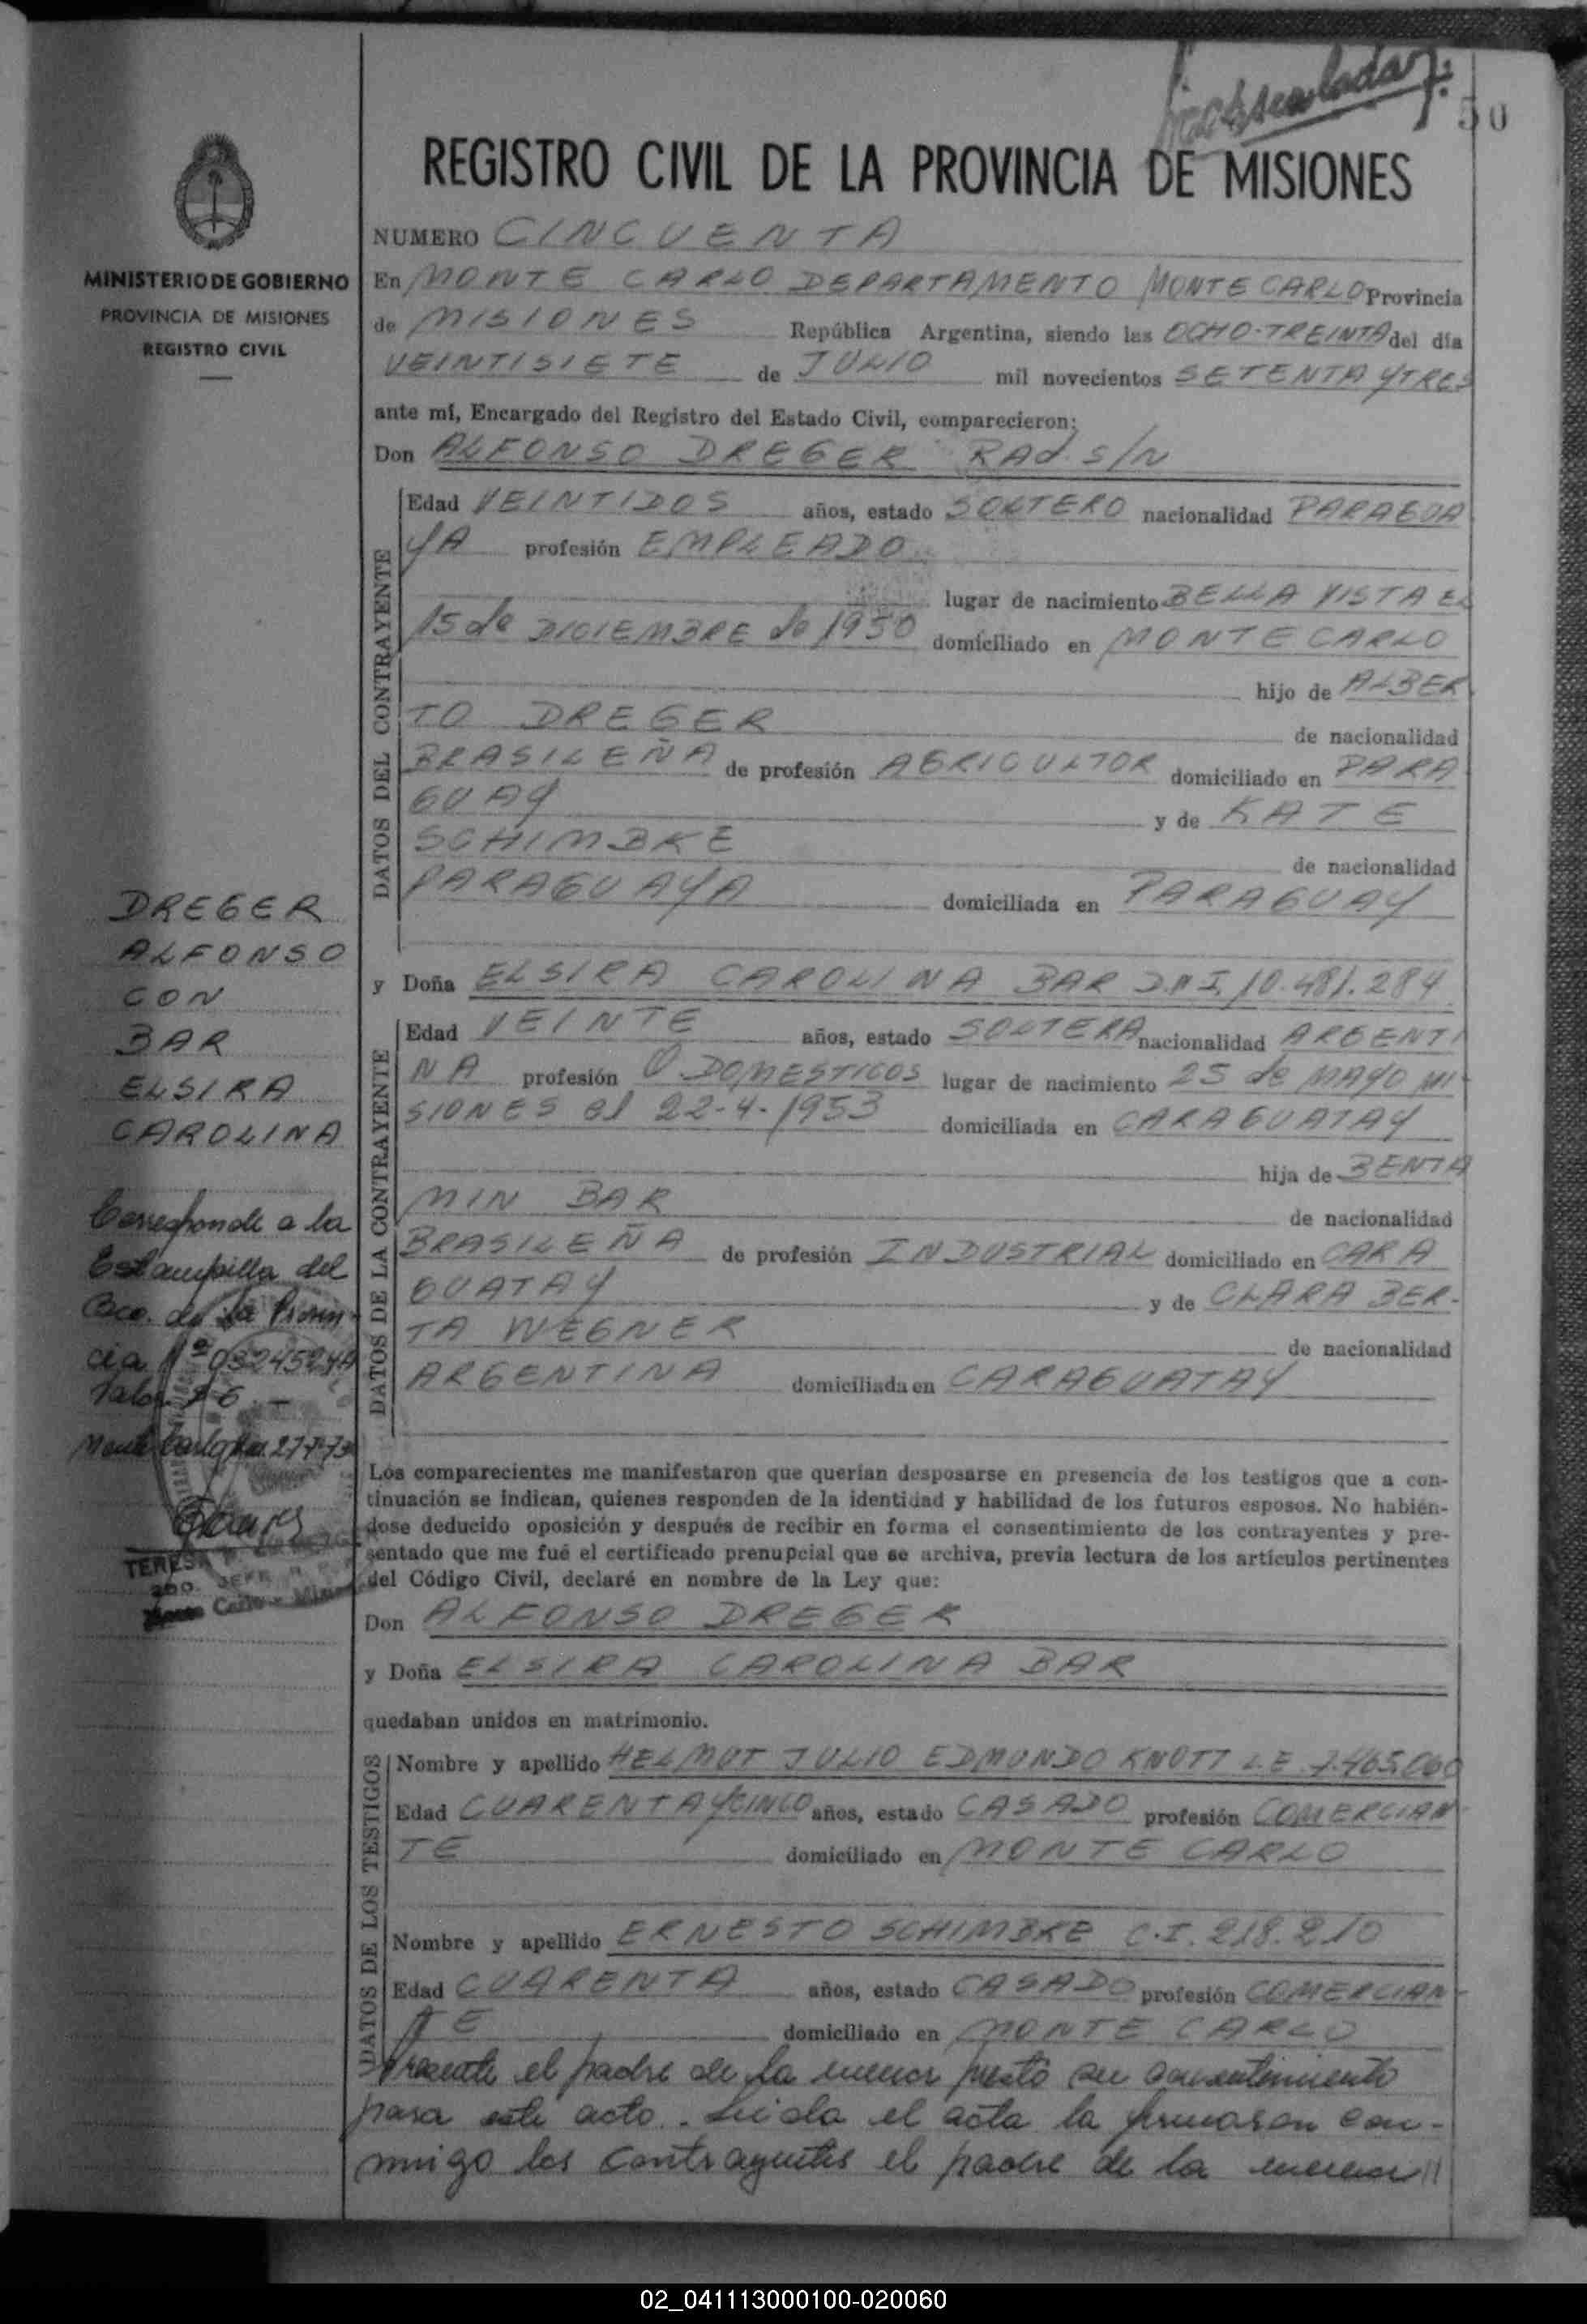 50
REGISTRO CIVIL DE LA PROVINCIA DE MISIONES
MINISTERIO DE GOBIERNO
PROVINCIA DE MISIONES
REGISTRO CIVIL
NUMERO CINCUENTA
En MONTE CARLO DEPARTAMENTO MONTE CARLO Provincia
de MISIONES República Argentina, siendo las OCHO-TREINTA del día
VEINTISIETE de JULIO mil novecientos SETENTA Y TRES
ante mí, Encargado del Registro del Estado Civil, comparecieron:
Don ALFONSO DREGER RAd. S/N
DATOS DEL CONTRAYENTE
Edad VEINTIDOS años, estado SOLTERO nacionalidad PARAGUA
YA profesión EMPLEADO
lugar de nacimiento BELLA VISTA EL
15 de DICIEMBRE de 1950 domiciliado en MONTE CARLO
hijo de ALBER
TO DREGER de nacionalidad
BRASILEÑA de profesión AGRICULTOR domiciliado en PARA
GUAY y de KATE
SCHIMBKE de nacionalidad
PARAGUAYA domiciliada en PARAGUAY
DREGER
ALFONSO
CON
BAR
ELSIRA
CAROLINA
y Doña ELSIRA CAROLINA BAR D.N.I. 10.481.284
DATOS DE LA CONTRAYENTE
Edad VEINTE años, estado SOLTERA nacionalidad ARGENTI
NA profesión Q. DOMESTICOS lugar de nacimiento 25 de MAYO MI-
SIONES el 22-4-1953 domiciliada en CARAGUATAY
hija de BENJA
MIN BAR de nacionalidad
BRASILEÑA de profesión INDUSTRIAL domiciliado en CARA
GUATAY y de CLARA BER-
TA WEGNER de nacionalidad
ARGENTINA domiciliada en CARAGUATAY
Corresponde a la
Estampilla del
Bco. de la Provin-
cia Nº
Valor
Monte Carlo 27-7-73
TERESA
Los comparecientes me manifestaron que querían desposarse en presencia de los testigos que a con-
tinuación se indican, quienes responden de la identidad y habilidad de los futuros esposos. No habién-
dose deducido oposición y después de recibir en forma el consentimiento de los contrayentes y pre-
sentado que me fué el certificado prenupcial que se archiva, previa lectura de los artículos pertinentes
del Código Civil, declaré en nombre de la Ley que:
Don ALFONSO DREGER
y Doña ELSIRA CAROLINA BAR
quedaban unidos en matrimonio.
DATOS DE LOS TESTIGOS
Nombre y apellido HELMUT JULIO EDMUNDO KNOTT L.E. 7.465.060
Edad CUARENTA Y CINCO años, estado CASADO profesión COMERCIAN-
TE domiciliado en MONTE CARLO
Nombre y apellido ERNESTO SCHIMBKE C.I. 218.210
Edad CUARENTA años, estado CASADO profesión COMERCIAN-
TE domiciliado en MONTE CARLO
Presente el padre de la menor prestó su consentimiento
para este acto. Leida el acta la firmaron con-
migo los contrayentes el padre de la menor//
02_041113000100-020060